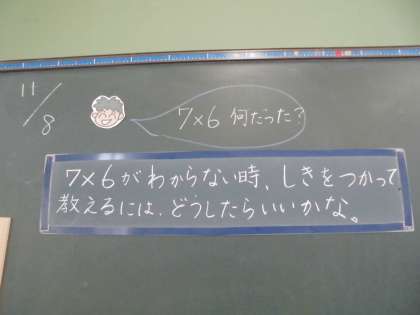 11/8
7×6 何だった?
7×6がわからない時、しきをつかって
教えるには、どうしたらいいかな。